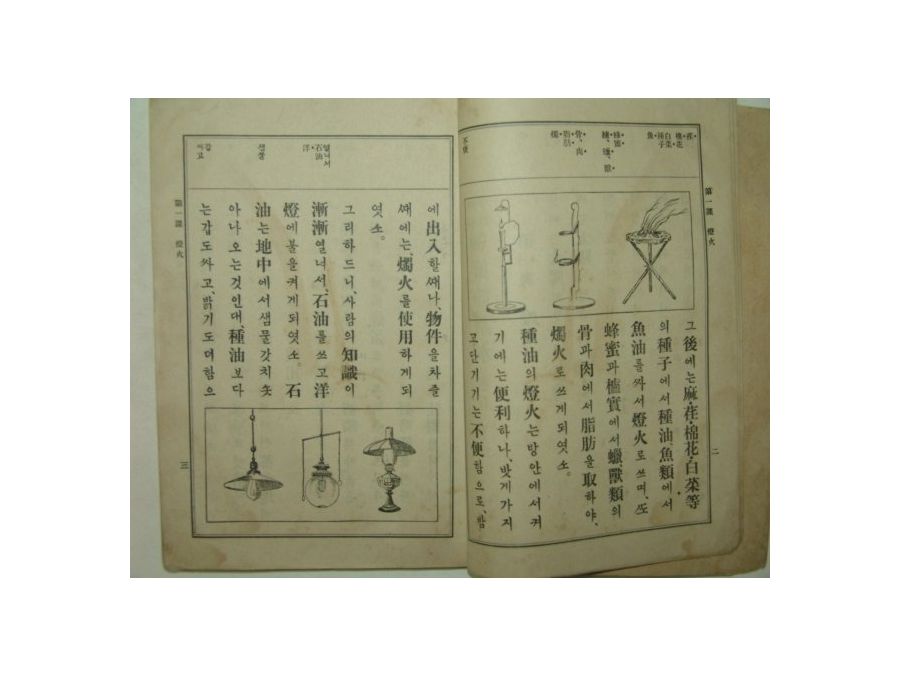 第一課 燈火
荏
棉花
白菜
種子
魚
蜂蜜
蠟
獸
骨、肉
脂肪
燭
不便
그後에는麻・荏・棉花・白菜等
의種子에서種油魚類에서
魚油를짜서燈火로쓰며、ᄯᅩ
蜂蜜과櫨實에서蠟、獸類의
骨과肉에서脂肪을取하야、
燭火로쓰게되엿소。
種油의燈火는방안에서켜
기에는便利하나、밧게가지
고단기기는不便함으로、밤
二
열녀서
石油
洋
샘물
갑
싸고
에出入할ᄯᅢ나、物件을차즐
ᄯᅢ에는、燭火를使用하게되
엿소。
그리하드니、사람의知識이
漸漸열녀서、石油를쓰고洋
燈에불을켜게되엿소。石
油는地中에서샘물갓치솟
아나오는것인대、種油보다
는갑도싸고、밝기도더함으
第一課 燈火
三